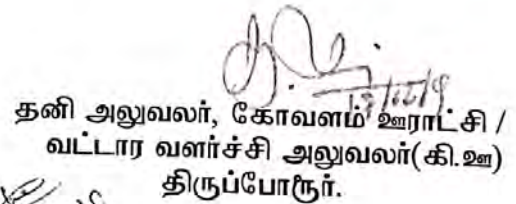 தனி அலுவலர், கோவளம் ஊராட்சி /
வட்டார வளர்ச்சி அலுவலர்(கி.ஊ)
திருப்போரூர்.